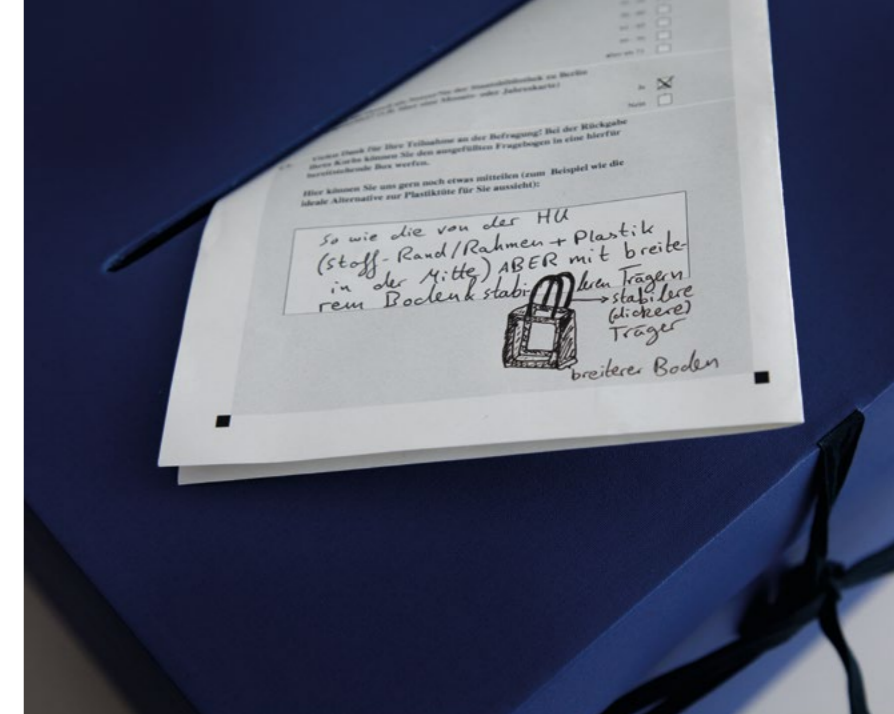 Nutzer der Staatsbibliothek zu Berlin
(z.B. über eine Monats- oder Jahreskarte)
Ja
Nein
Vielen Dank für Ihre Teilnahme an der Befragung! Bei der Rückgabe
Ihrer Karte können Sie den ausgefüllten Fragebogen in eine hierfür
bereitstehende Box werfen.
Hier können Sie uns gern noch etwas mitteilen (zum Beispiel wie die
ideale Alternative zur Plastiktüte für Sie aussieht):
So wie die von der HU
(Stoff-Rand/Rahmen + Plastik
in der Mitte) ABER mit breite-
rem Boden & stabileren Trägern
stabilere
(dickere)
Träger
breiterer Boden